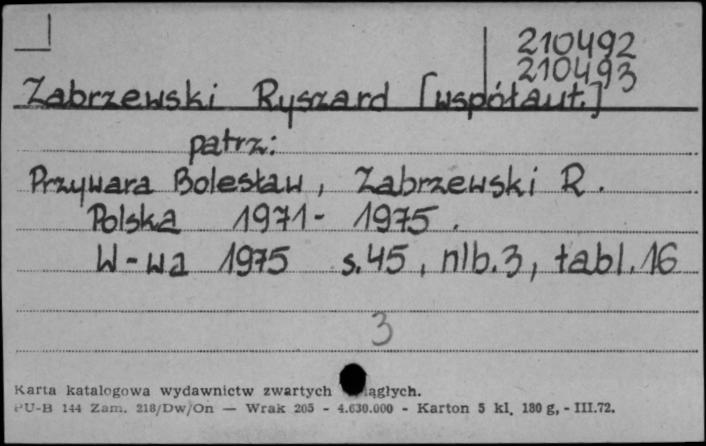 210492
210493
Zabrzewski Ryszard [współaut.]
patrz:
Przywara Bolesław, Zabrzewski R.
Polska 1971- 1975.
W-wa 1975 s.45, nlb.3, tabl.16
3
Karta katalogowa wydawnictw zwartych ągłych.
PU-B 144 Zam. 218/Dw/On — Wrak 205 - 4.630.000 - Karton 5 kl. 180 g, - III.72.